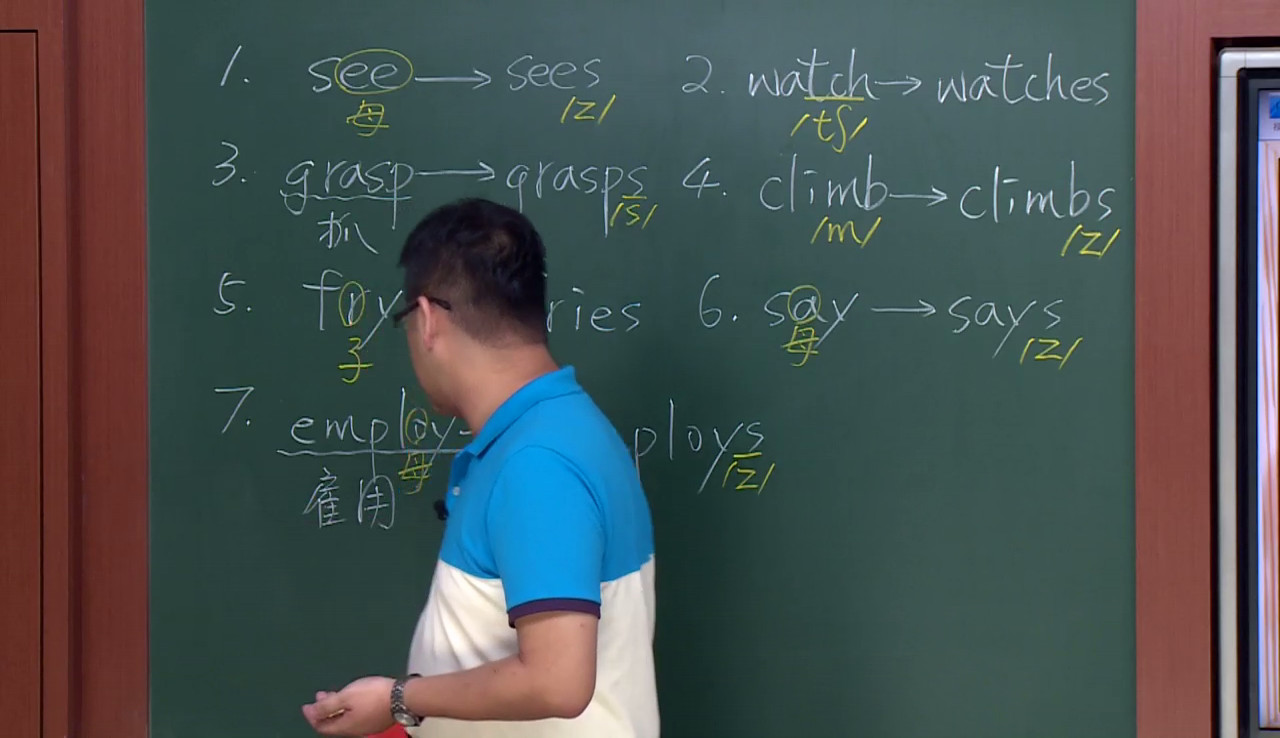 1. see → sees 2. watch → watches
母 /z/ /tʃ/
3. grasp → grasps 4. climb → climbs
抓 /s/ /m/ /z/
5. fry ries 6. say → says
子 母 /z/
7. employ ploys
雇用 母 /z/